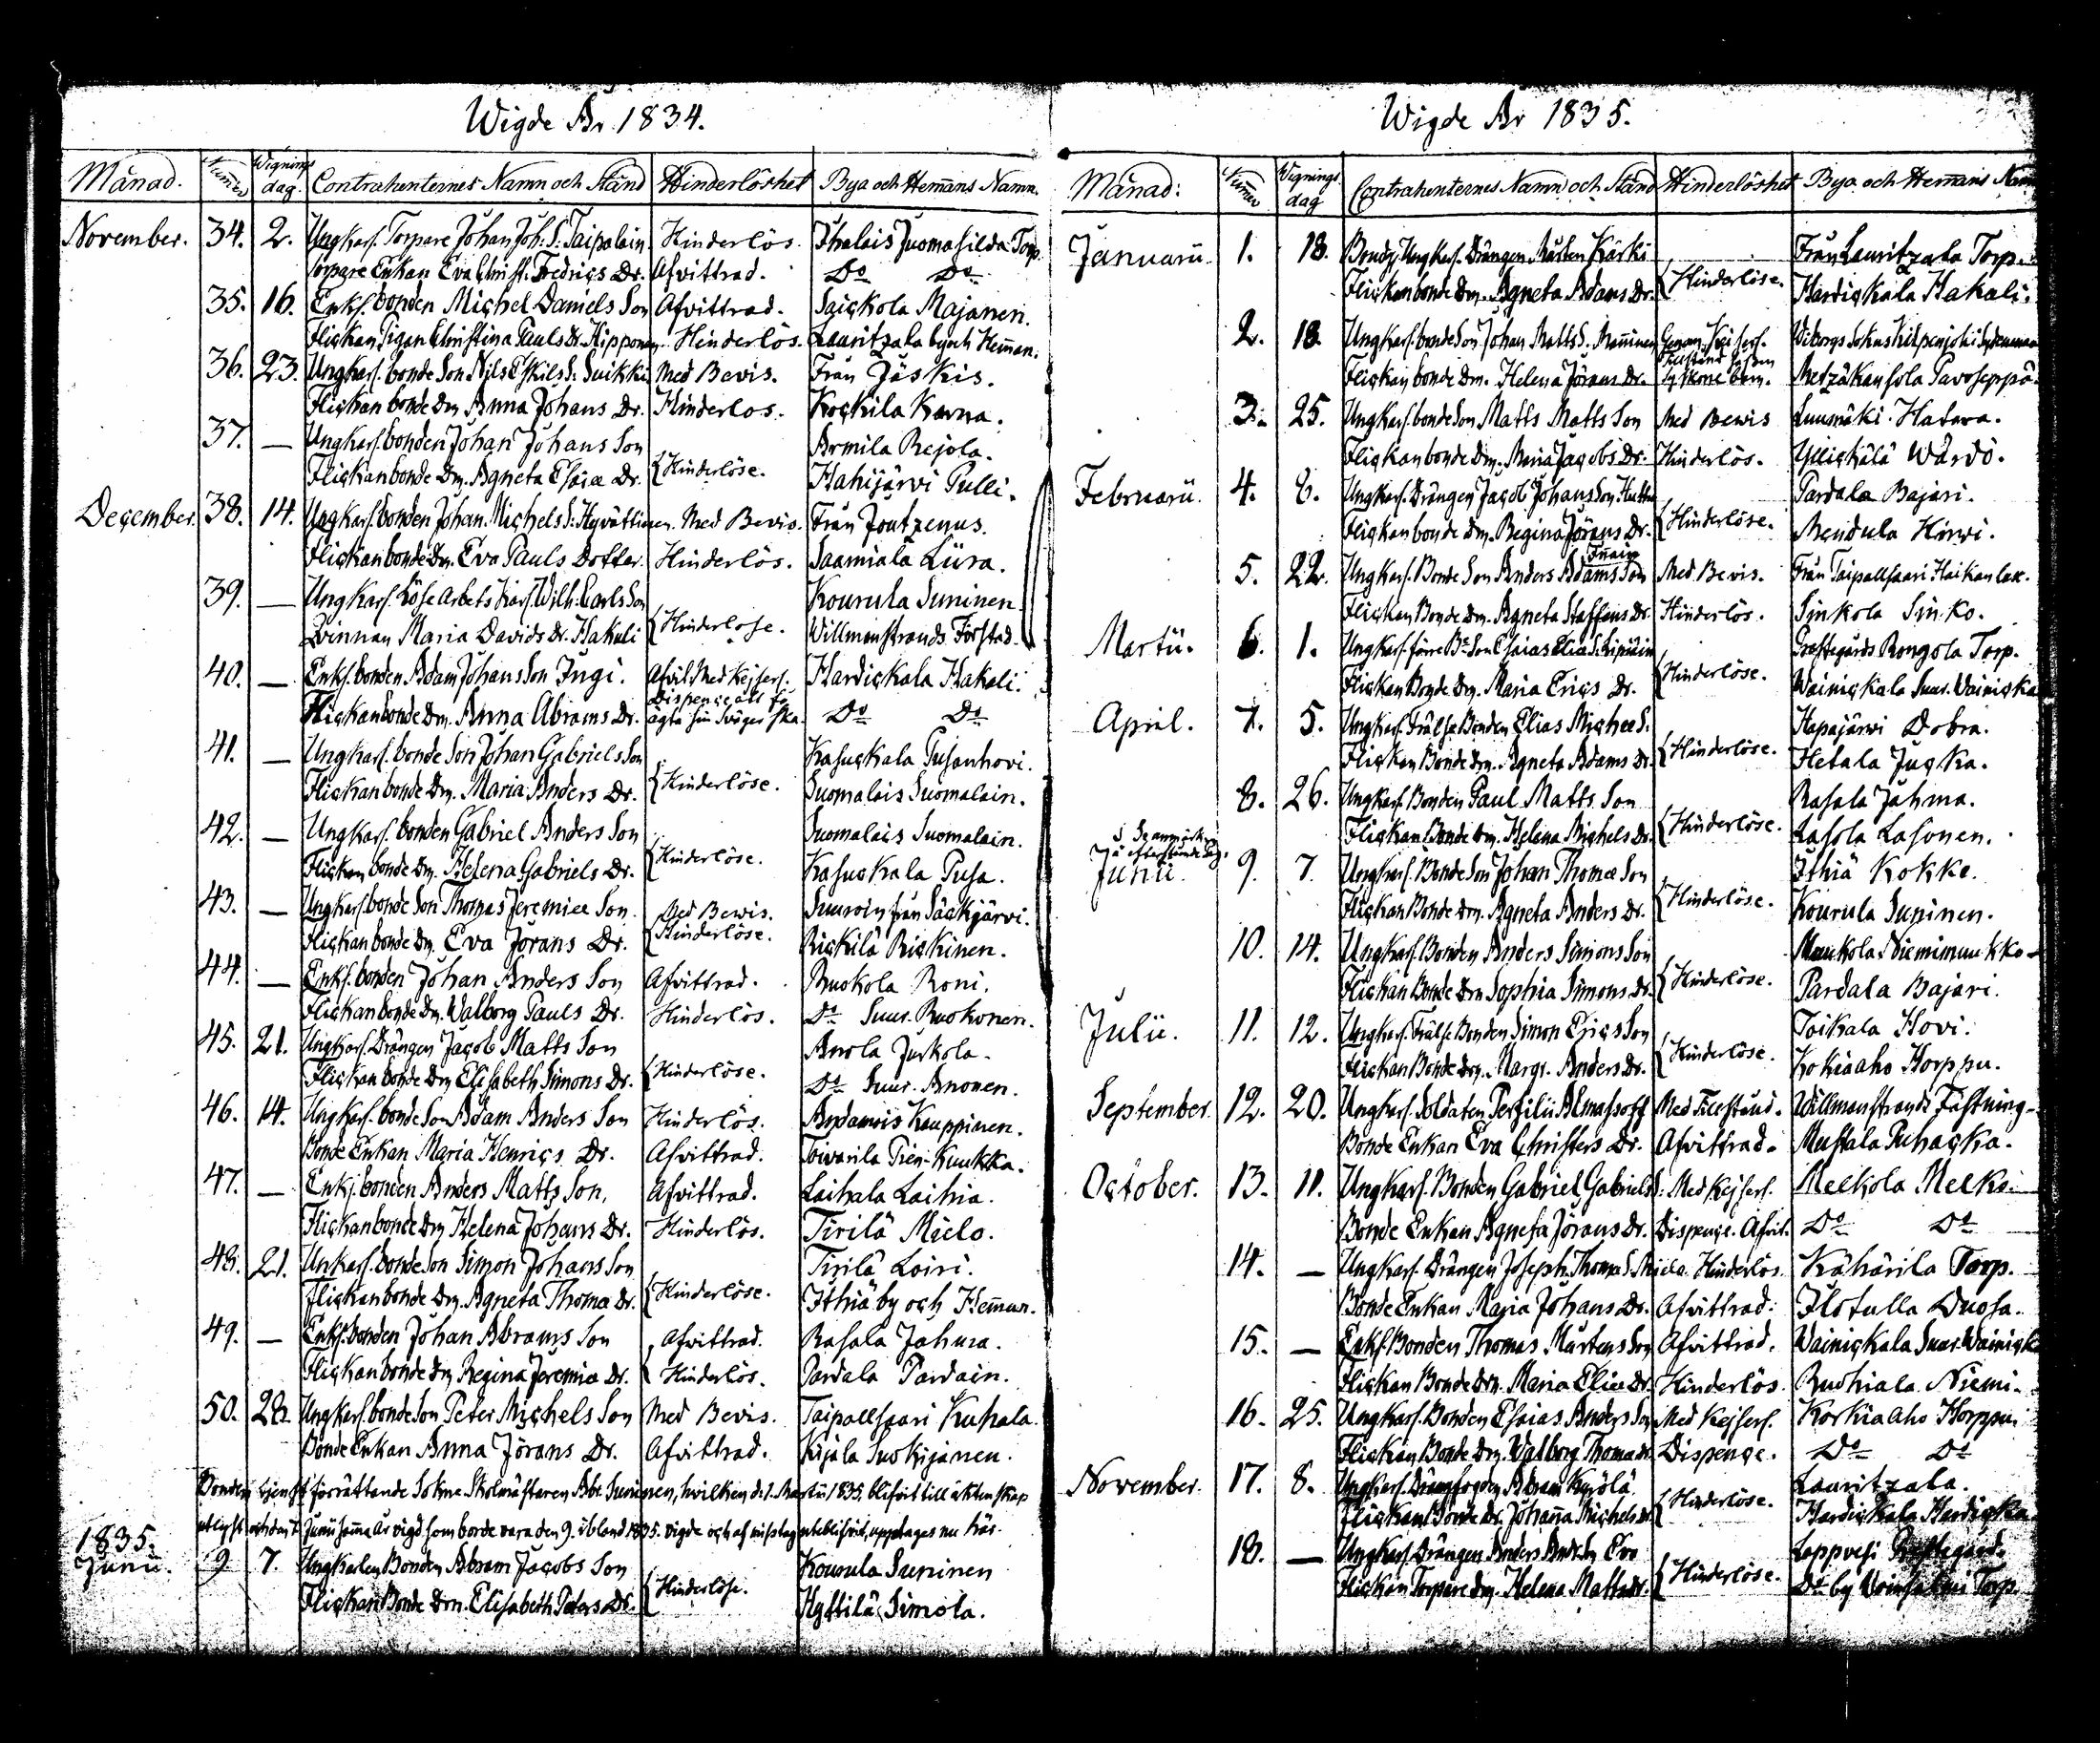 Wigde År 1834.
Månad. Numer Wignings dag. Contrahenternes Namn och Stånd Hinderlöshet Bya och Hemans Namn.
November. 34. 2. Ungkarl. Torpare Johan Joh: S: Taipalain. Hinderlös. Ihalais Torp.
Torpare Enkan Eva Christ. Fredrics Dr. Afvittrad. Do Do
35. 16. Enkl. bonden Michel Daniels Son Afvittrad. Saickola Majanen.
Flickan Pigan Christina Pauls Dr. Hipponen Hinderlös. Lauritzala by och Heman.
36. 23. Ungkarl. bonde Son Nils Eskils S: Suikki Med Bevis. Från Jäskis.
Flickan bonde Dm Anna Johans Dr. Hinderlos. Kockila Karna.
37. — Ungkarl. bonden Johan Johans Son Armila Rejola.
Flickan bonde Dm. Agneta Esaiæ Dr. {Hinderlöse. Hahijärvi Pulli.
December. 38. 14. Ungkarl. bonden Johan Michels S: Hyvättinen. Med Bevis. Från Joutzenus.
Flickan bonde Dm. Eva Pauls Dotter. Hinderlös. Saamiala Liira.
39. — Ungkarl. Löse arbets karl. Wilh: Carls Son Kourula Suninen.
Qvinnan Maria Davids Dr. Hakuli {Hinderlose. Willmanstrands Förstad.
40. — Enkl. bonden Adam Johans Son Jngi. Afvit. Med Kejserl. Hardickala Hakali.
Flickan bonde Dm. Anna Abrams Dr. Dispence att få ägta sin Svägerska. Do Do
41. — Ungkarl. bonde Son Johan Gabriels Son Kasuckala Pusanhovi.
Flickan bonde Dm. Maria Anders Dr. {Hinderlöse. Suomalais Suomalain.
42. — Ungkarl. bonden Gabriel Anders Son Suomalais Suomalain.
Flickan bonde Dm. Helena Gabriels Dr. {Hinderlöse. Kasuckala Pusa.
43. — Ungkarl. bonde Son Thomas Jeremiæ Son. Med Bewis. från Säckjärvi.
Flickan bonde Dm. Eva Jörans Dr. Hinderlöse. Rickilä Rickinen.
44. — Enkl. bonden Johan Anders Son Afvittrad. Ruokola Roni.
Flickan bonde Dm. Walborg Pauls Dr. Hinderlös. Do Suur. Ruokonen.
45. 21. Ungkarl. Drängen Jacob Matts Son Anola Jurkola.
Flickan bonde Dm Elisabeth Simons Dr. {Hinderlöse. Do Suur. Anonen.
46. 14. Ungkarl. bonde Son Adam Anders Son Hinderlös. Kauppinen.
Bonde Enkan Maria Henrics Dr. Afvittrad. Toivarila Pien-Kuukka.
47. — Enkl. bonden Anders Matts Son, Afvittrad. Laihala Laihia.
Flickan bonde Dm Helena Johans Dr. Hinderlös. Tirilä Mielo.
48. 21. Unkarl. bonde Son Simon Johans Son Tirilä Loiri.
Flickan bonde Dm. Agneta Thomæ Dr. {Hinderlöse. Ithiä by och Heman.
49. — Enkl. bonden Johan Abrams Son Afvittrad. Rasala Jahma.
Flickan bonde Dm Regina Jeremiæ Dr. Hinderlös. Pardala Pardain.
50. 28. Ungkarl. bonde Son Peter Michels Son Med Bevis. Taipallsaari Kuhala.
Bonde Enkan Anna Jörans Dr. Afvittrad. Kijala Suokijanen.
Bonden förrättande Sokne Skolmästaren Abr Suninen, hvilken d. 1. Martii 1835, blifvit till äktenskap
utlyst och den 7 Junii sama år vigd som borde vara den 9. ibland 1835. vigde och af misstag uteblifvit, upptages nu här.
1835.
Junii. 9 7. Ungkarlen Bonden Abram Jacobs Son Kourula Suninen
Flickan Bonde Dm. Elisabeth Peters Dr. {Hinderlöse. Hyttilä Simola.
Wigde År 1835.
Månad: Numer Wignings dag Contrahenternes Namn och Stånd Hinderlöshet Bya och Hemans Namn
Januarii. 1. 18. Ungkarl. Drängen Mårten Kärki Från Lauritzala Torp.
Flickan bonde Dm. Agneta Adams Dr. {Hinderlöse. Hardickala Hakali.
2. 18. Ungkarl. bonde Son Johan Matts S. Genom Keiserl. Wiborgs Sokns
Flickan bonde Dm. Helena Jörans Dr. Tillstånd Metzäkansola Pavoseppä.
3. 25. Ungkarl. bonde Son Matts Matts Son Med Bewis Luumäki. Hatava.
Flickan bonde Dm. Maria Jacobs Dr. Hinderlös. Yllickälä Wärdö.
Februarii. 4. 8. Ungkarl. Drängen Jacob Johans Son Pardala Bajari.
Flickan bonde Dm. Regina Jörans Dr. {Hinderlöse. Mendula Hirwi.
5. 22. Ungkarl. Bonde Son Anders Adams Son Med Bevis. Från Taipallsaari
Flickan Bonde Dm. Agneta Staffans Dr. Hinderlös. Sinkola Sinko.
Martii. 6. 1. Ungkarl. Son Esaias Eliæ S. Prestegårds Rongola Torp.
Flickan Bonde Dm. Maria Erics Dr. {Hinderlöse. Wainickala Suur. Wainicka
April. 7. 5. Ungkarl. Frälse Bonden Elias Michee S. Hapajärwi Dobra.
Flickan Bonde Dm. Agneta Adams Dr. {Hinderlöse. Hetala Jucka.
8. 26. Ungkarl. Bonden Paul Matts Son Rasala Jahma.
Flickan Bonde Dm. Helena Michels Dr. {Hinderlöse. Lasola Lasonen.
Junii. 9. 7. Ungkarl. Bonde Son Johan Thomæ Son Ithiä Kokko.
Flickan Bonde Dm. Agneta Anders Dr. {Hinderlöse. Kourula Suninen.
10. 14. Ungkarl. Bonden Anders Simons Son Muukola. Niemimuukko
Flickan Bonde Dm Sophia Simons Dr. {Hinderlöse. Pardala Bajari.
Julii. 11. 12. Ungkarl. Frälse Bonden Simon Erics Son Toikala Hovi.
Flickan Bonde Dm. Margr. Anders Dr. {Hinderlöse. Kokiaaho Horppu.
September. 12. 20. Ungkarl. Soldaten Perfilii Almasoff Med Tillstånd. Willmanstrands Fästning.
Bonde Enkan Eva Christers Dr. Afvittrad. Mustala Puhacka.
October. 13. 11. Ungkarl. Bonden Gabriel Gabriels S: Med Kejserl. Melkola Melko.
Bonde Enkan Agneta Jörans Dr. Dispence. Afvit. Do Do
14. — Ungkarl. Drängen Joseph Thomæ S. Hinderlös. Kähärilä Torp.
Bonde Enkan Maria Johans Dr. Afvittrad. Ilotulla Duosa.
15. — Enkl. Bonden Thomas Mårtens Son Afvittrad. Wainickala Suur. Wainick
Flickan Bonde Dm. Maria Eliæ Dr. Hinderlös. Ruohiala Niemi.
16. 25. Ungkarl. Bonden Esaias Anders Son Med Kejserl. Korkiaaho Horppu.
Flickan Bonde Dm. Walborg Thomæ Dr. Dispence. Do Do
November. 17. 8. Ungkarl. Abram Kyölä. Lauritzala.
Flickan Bonde Dr. Johanna Michels Dr. {Hinderlöse. Hardickala Hardicka
18. — Ungkarl. Drängen Anders Lappvesi Prestegård.
Flickan Torpare Dm. Helena Matts Dr. {Hinderlöse. Do by Torp.